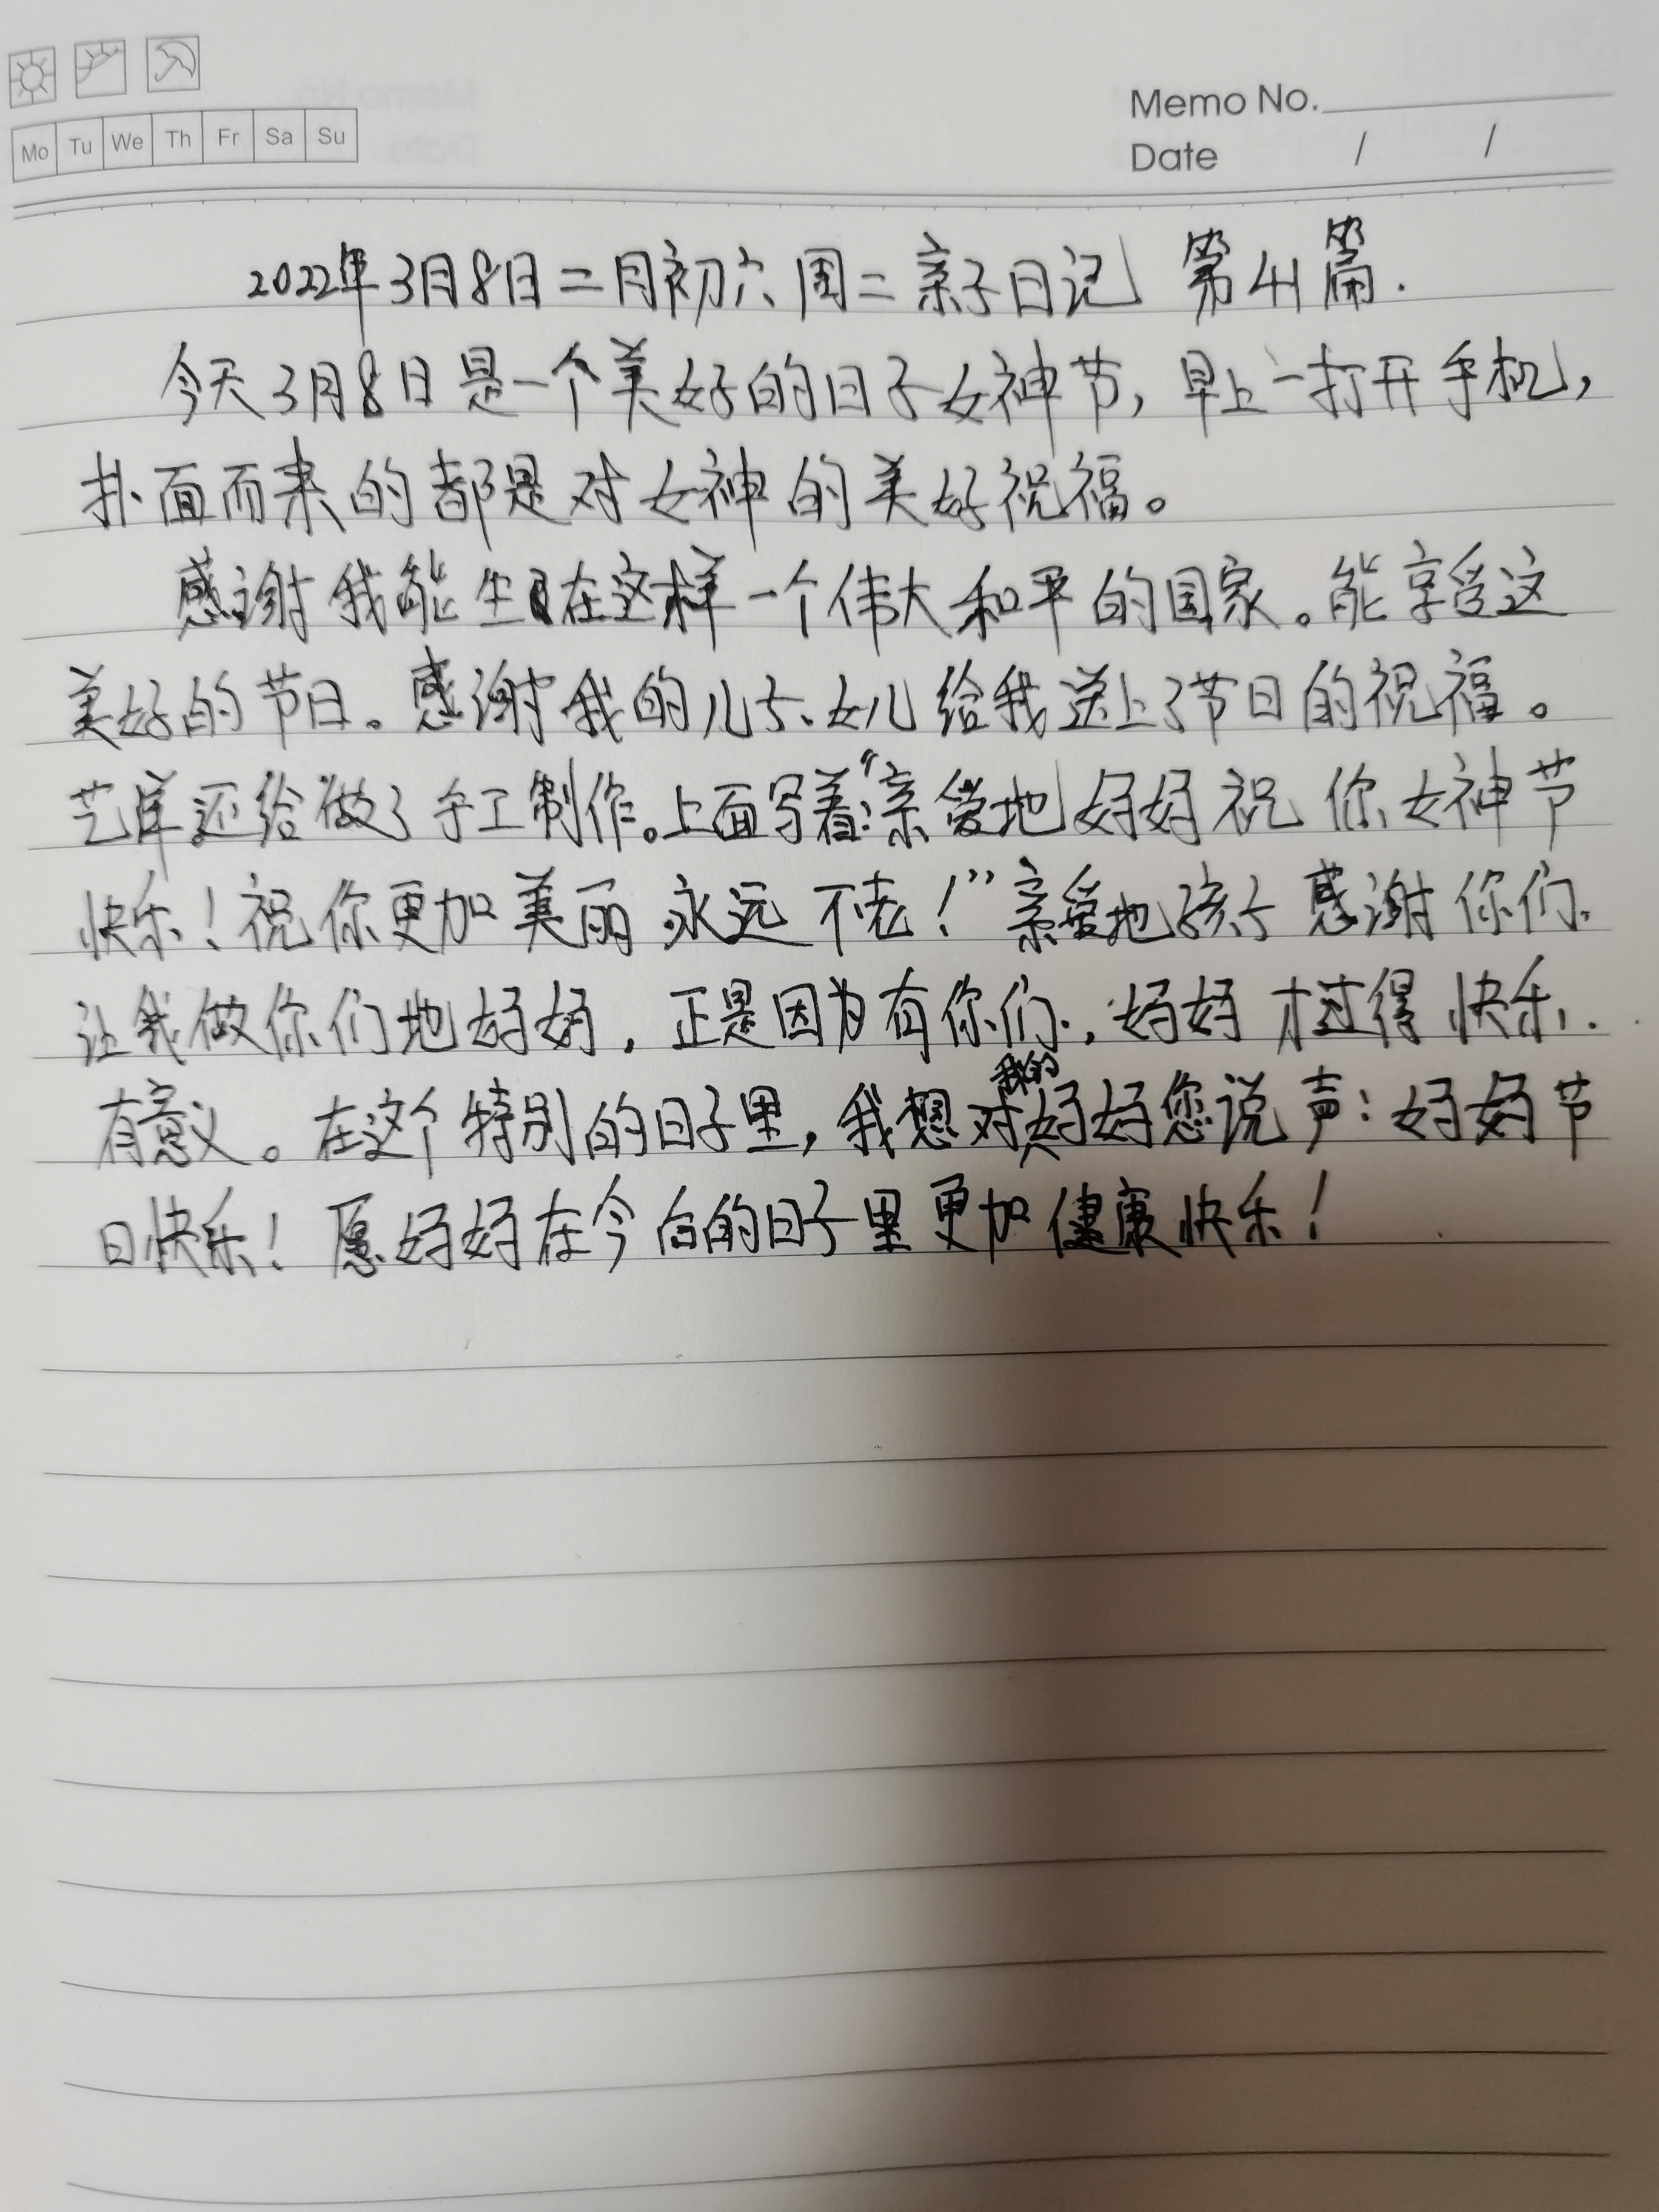 Memo No.
Mo Tu We Th Fr Sa Su
Date / /
2022年3月8日二月初六周二亲子日记 第41篇.
今天3月8日是一个美好的日子女神节,早上一打开手机,
扑面而来的都是对女神的美好祝福。
感谢我能生在这样一个伟大和平的国家。能享受这
美好的节日。感谢我的儿子、女儿给我送上了节日的祝福。
艺单还给做了手工制作。上面写着:“亲爱地妈妈祝你女神节
快乐!祝你更加美丽永远不老!”亲爱地孩子感谢你们.
让我做你们地妈妈,正是因为有你们.,妈妈才过得快乐,.
有意义。在这个特别的日子里,我想对我的妈妈您说声:妈妈节
日快乐!愿妈妈在今后的日子里更加健康快乐!